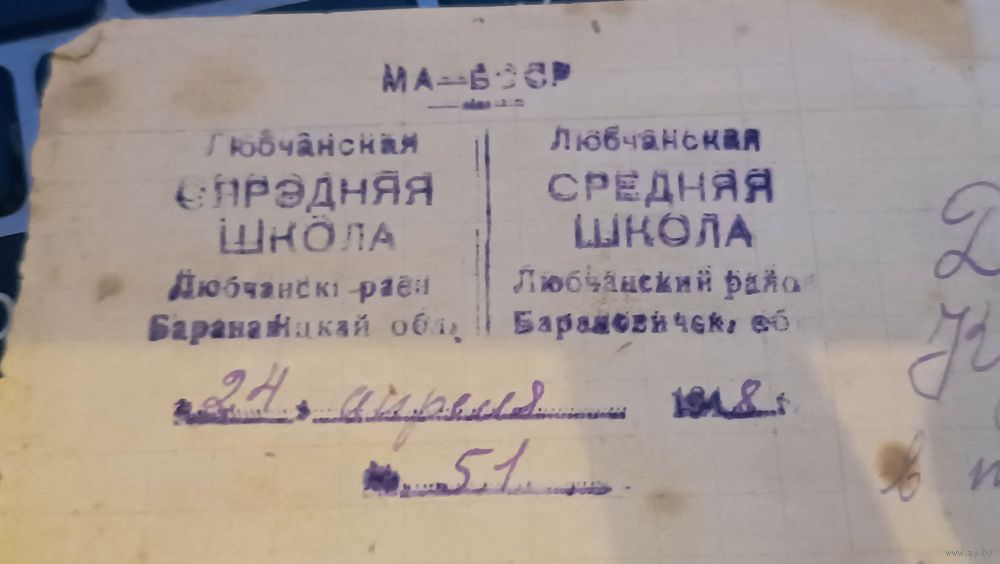 МА—БССР
Любчанская
СЯРЭДНЯЯ
ШКОЛА
Любчанскі раён
Баранавіцкай обл.
Любчанская
СРЕДНЯЯ
ШКОЛА
Любчанский райо
Барановичск. об
24 апреля 1948 г.
№ 51
в
www.ay.by